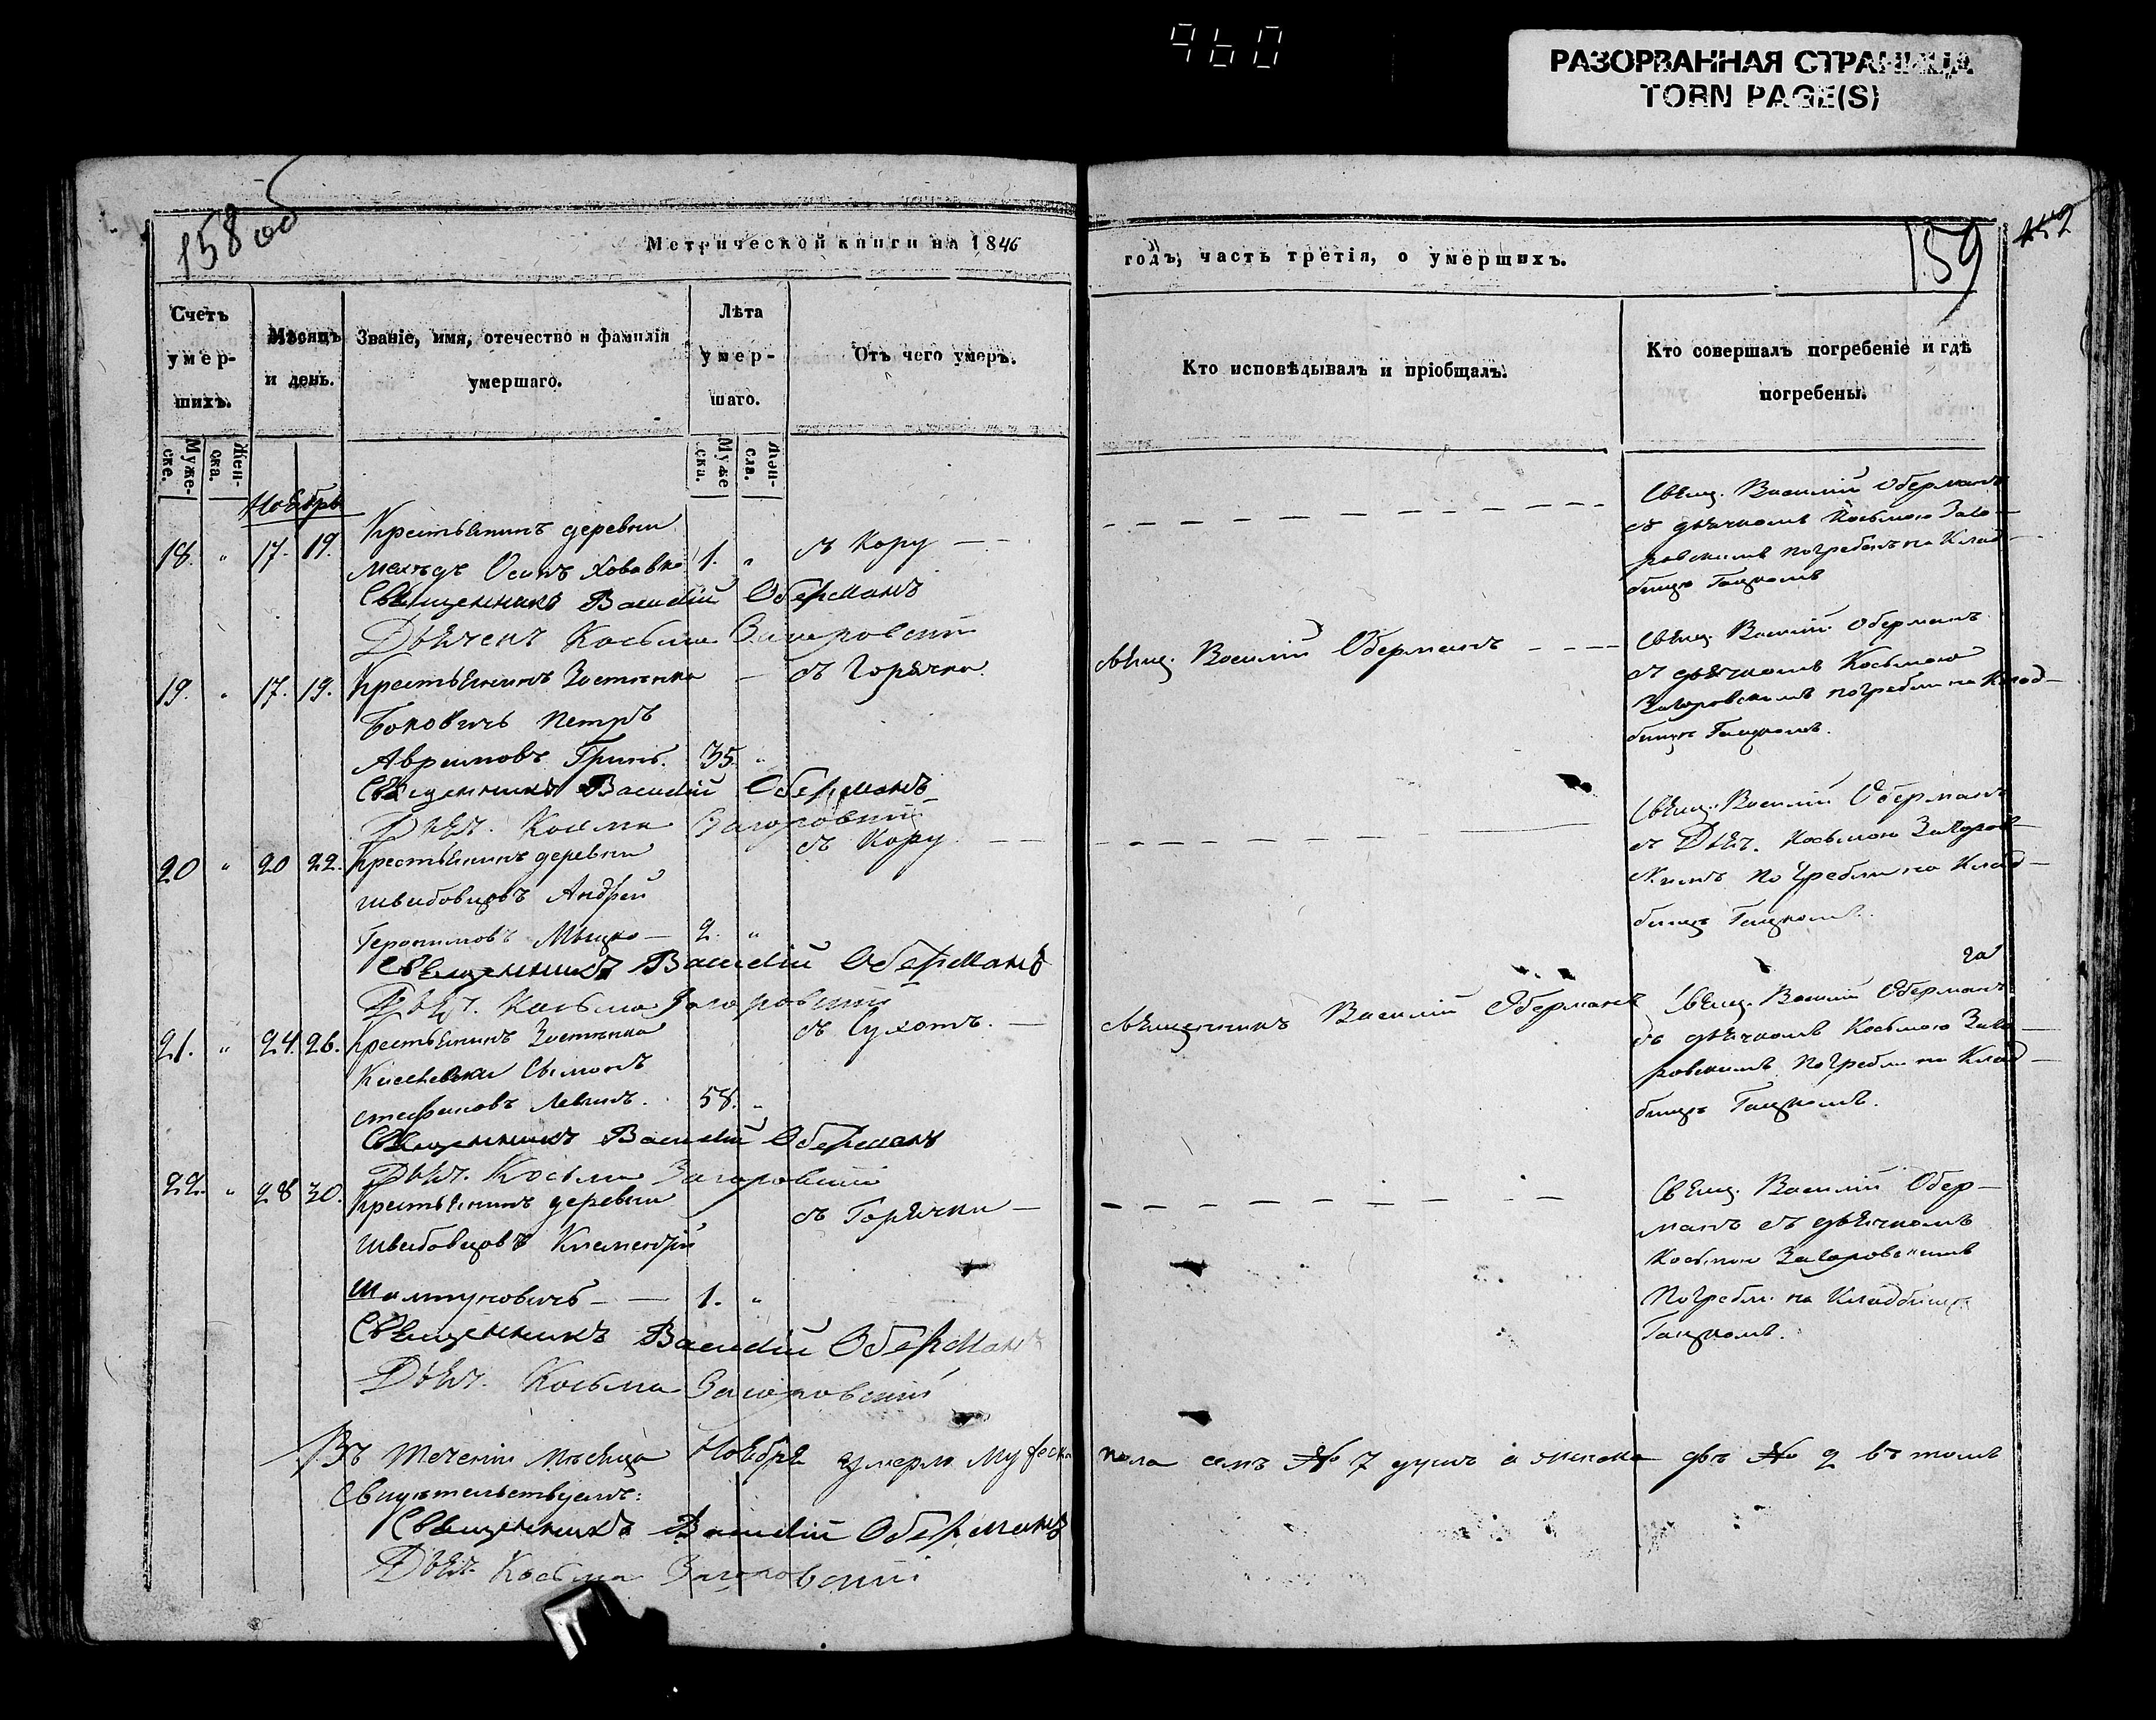 960
РАЗОРВАННАЯ СТРАНИЦА
TORN PAGE(S)
158 об
Метрической книги на 1846
годъ, часть третія, о умершихъ.
159
Счетъ умер-шихъ.
Муже-ске.
Жен-ска.
Мѣсяцъ и день.
Званіе, имя, отечество и фамилія умершаго.
Лѣта умер-шаго.
Муже ска.
Жен-ска.
Отъ чего умеръ.
Кто исповѣдывалъ и пріобщалъ.
Кто совершалъ погребеніе и гдѣ погребены.
Ноябрь
18. " 17. 19. Крестьянинъ деревни
Осипъ 1. " съ Кору
Священникъ Василій Оберманъ
Дьячекъ Косьма Загоровскій
Свящ. Василій Оберманъ
съ дьячкомъ Косьмою Заго-
ровскимъ погребенъ на Клад-
бищѣ
19. " 17. 19. Крестьянинъ Застѣнка съ Горячки.
Боковичъ Петръ
Авраимовъ Гринь. 35. "
Священникъ Василій Оберманъ
Дьяч. Косьма Загоровскій
Свящ. Василій Оберманъ
Свящ. Василій Оберманъ
съ дьячкомъ Косьмою
Загоровскимъ погребли на Клад-
бищѣ
20 " 20 22. Крестьянинъ деревни съ Кору
Швабовцовъ Андрей
Геронимовъ 2. "
Священникъ Василій Оберманъ
Дьяч. Косьма Загоровскій
Свящ. Василій Оберманъ
съ Дьяч. Косьмою Загоров-
скимъ погребли на Клад-
бищѣ
21. " 24. 26. Крестьянинъ Застѣнка съ Сухотъ.
Сымонъ
Стефановъ Левинъ. 58. "
Священникъ Василій Оберманъ
Дьяч. Косьма Загоровскій
Священникъ Василій Оберманъ
Свящ. Василій Оберманъ
съ дьячкомъ Косьмою Заго-
ровскимъ погребли на Клад-
бищѣ
22. " 28 30. Крестьянинъ деревни съ Горячки
Швабовцовъ
1. "
Священникъ Василій Оберманъ
Дьяч. Косьма Загоровскій
Свящ. Василій Обер-
манъ съ дьячкомъ
Косьмою Загоровскимъ
Погребли на Кладбищѣ
Въ теченіи мѣсяца Ноября умерло мужеска пола семъ № 7 душъ а женска двѣ № 2 въ томъ
Свидѣтельствуемъ:
Священникъ Василій Оберманъ
Дьяч. Косьма Загоровскій